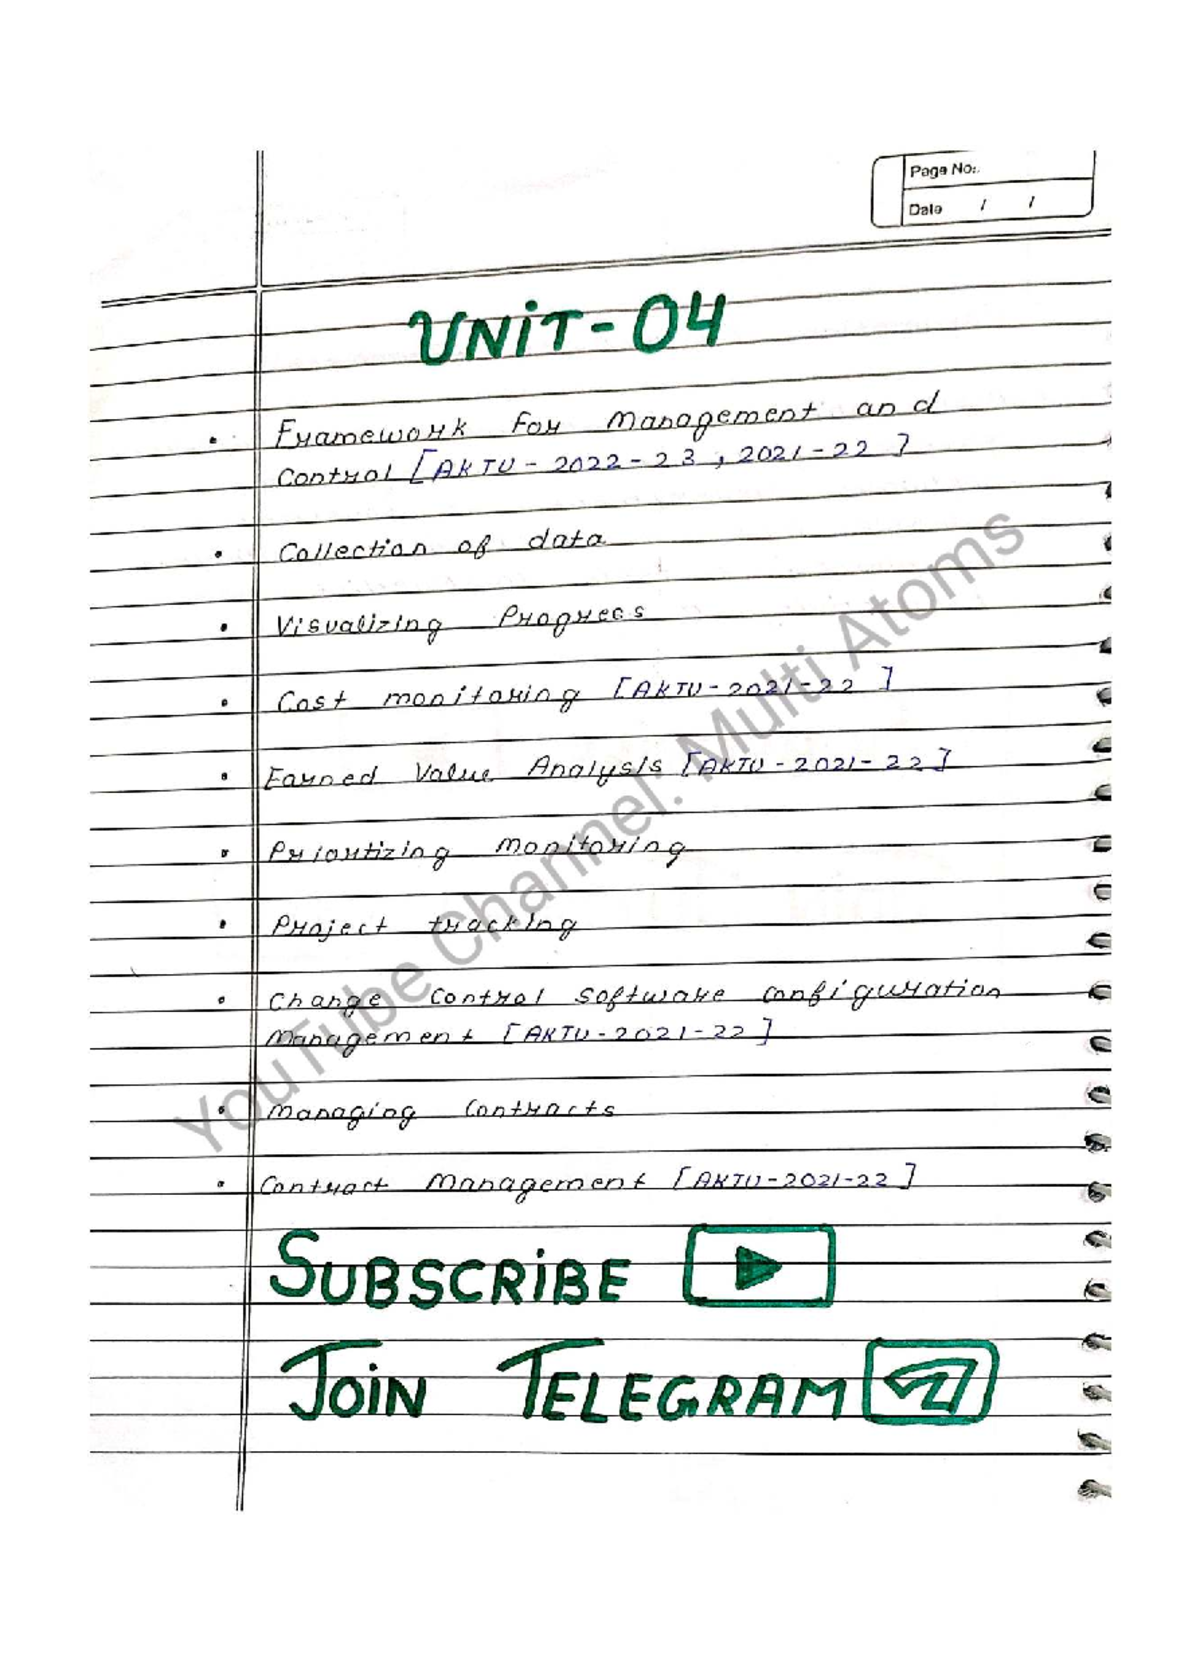 Page No:.
Date / /
UNiT-04
• Framework For Management and
Control [AKTU - 2022-23, 2021-22]
• Collection of data
• Visualizing Progress
• Cost monitoring [AKTU-2021-22]
• Earned Value Analysis [AKTU-2021-22]
• Prioritizing monitoring
• Project tracking
• Change Control Software Configuration
Management [AKTU-2021-22]
• Managing Contracts
• Contract Management [AKTU-2021-22]
SUBSCRiBE
JOiN TELEGRAM
YouTube Channel: Multi Atoms